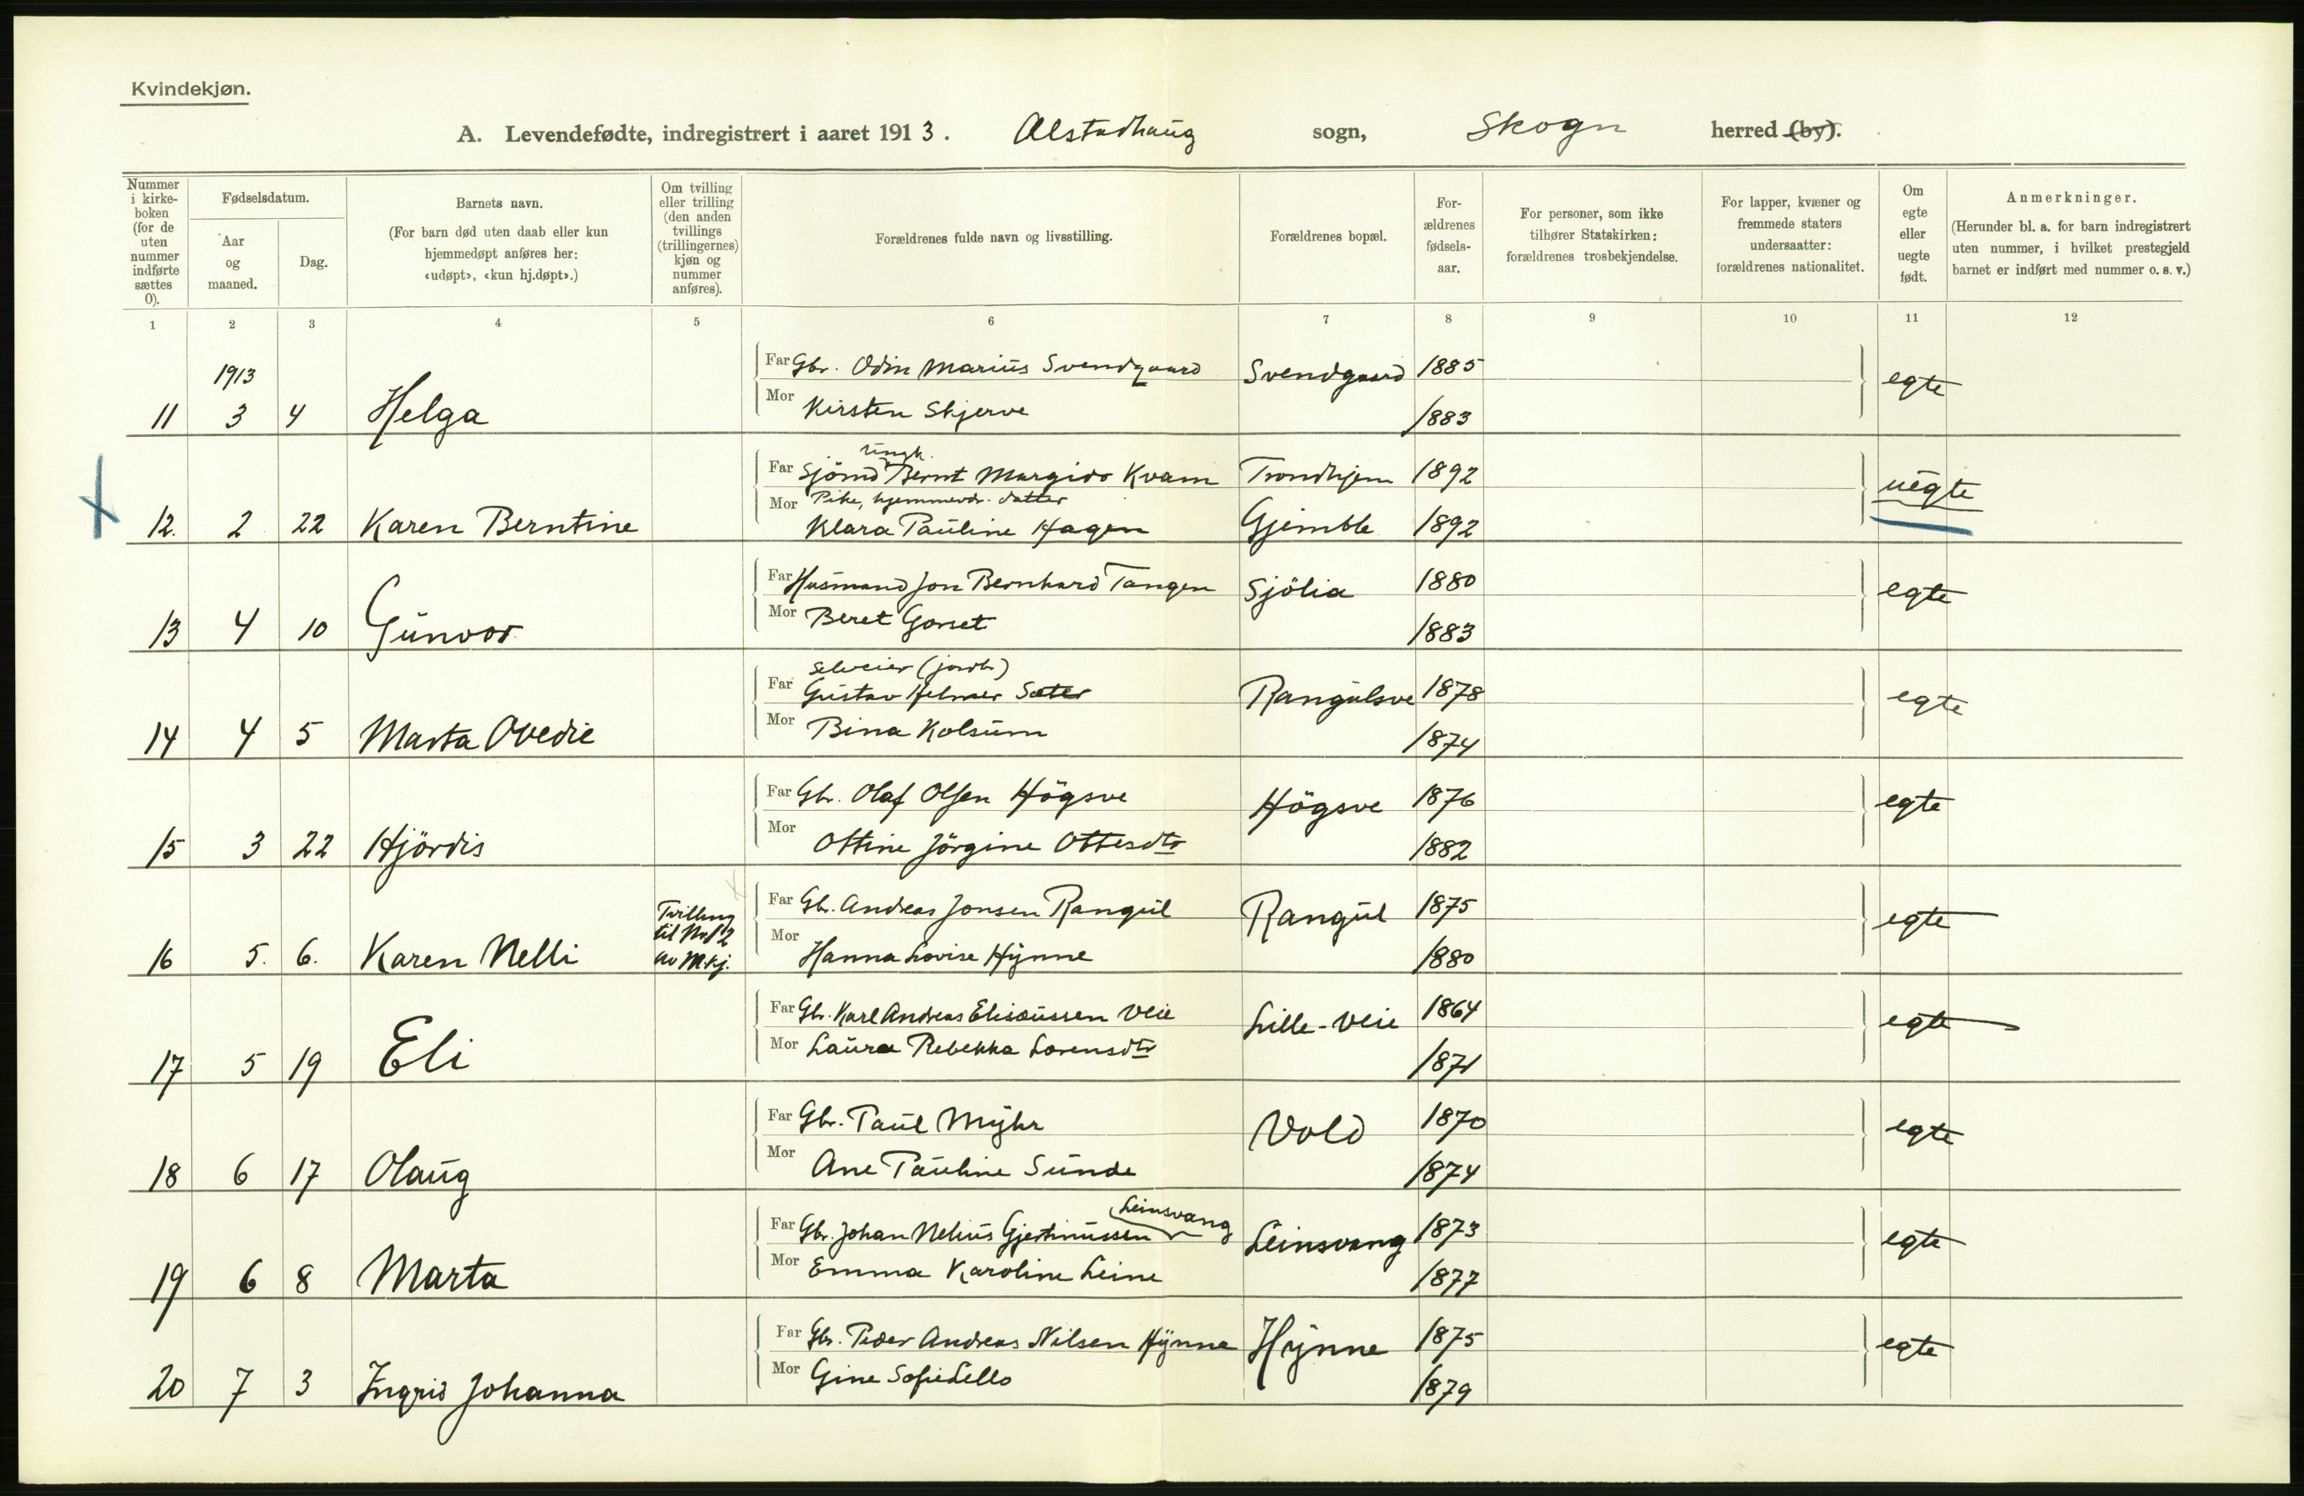 Kvindekjøn.
A. Levendefødte, indregistrert i aaret 1913. Alstadhaug sogn, Skogn herred (by).
Nummer i kirkeboken (for de uten nummer indførte sættes 0).
Fødselsdatum.
Aar og maaned.
Dag.
Barnets navn.
(For barn død uten daab eller kun hjemmedøpt anføres her: «udøpt», «kun hj.døpt».)
Om tvilling eller trilling (den anden tvillings (trillingernes) kjøn og nummer anføres).
Forældrenes fulde navn og livsstilling.
Forældrenes bopæl.
Forældrenes fødselsaar.
For personer, som ikke tilhører Statskirken: forældrenes trosbekjendelse.
For lapper, kvæner og fremmede staters undersaatter: forældrenes nationalitet.
Om egte eller uegte født.
Anmerkninger.
(Herunder bl. a. for barn indregistrert uten nummer, i hvilket prestegjeld barnet er indført med nummer o. s. v.)
1 2 3 4 5 6 7 8 9 10 11 12
1913
Far Gbr. Odin Marius Svendgaard Svendgaard 1885 egte
11 3 4 Helga Mor Kirsten Skjerve 1883
ungk.
Far Sjömd Bernt Margido Kvam Trondhjem 1892 uegte
Pike, hjemmevr. datter
12. 2 22 Karen Berntine Mor Klara Pauline Hagen Gjemble 1892
Far Husmand Jon Bernhard Tangen Sjölia 1880 egte
13 4 10 Gunvor Mor Beret Gorset 1883
Selveier (jordb)
Far Gustav Helmer Sæter Rangulsve 1878 egte
14 4 5 Marta Ovedie Mor Bina Kolsum 1874
Far Gbr. Olaf Olsen Högsve Högsve 1876 egte
15 3 22 Hjördis Mor Ottine Jörgine Ottesdtr 1882
Far Gbr. Andreas Jonsen Rangul Rangul 1875 egte
16 5. 6. Karen Nelli Tvilling til No 12 av M.kj. Mor Hanna Lovise Hynne 1880
Far Gbr. Karl Andreas Elisæussen Veie Lille-Veie 1864 egte
17 5 19 Eli Mor Laura Rebekka Lorensdtr 1871
Far Gbr. Paul Myhr Vold 1870 egte
18 6 17 Olaug Mor Ane Pauline Sunde 1874
Leinsvang
Far Gbr. Johan Nelius Gjertinussen Leinsvang 1873 egte
19 6 8 Marta Mor Emma Karoline Leine 1877
Far Gbr. Peder Andreas Nilsen Hynne Hynne 1875 egte
20 7 3 Ingrid Johanna Mor Gine Sofie Lello 1879